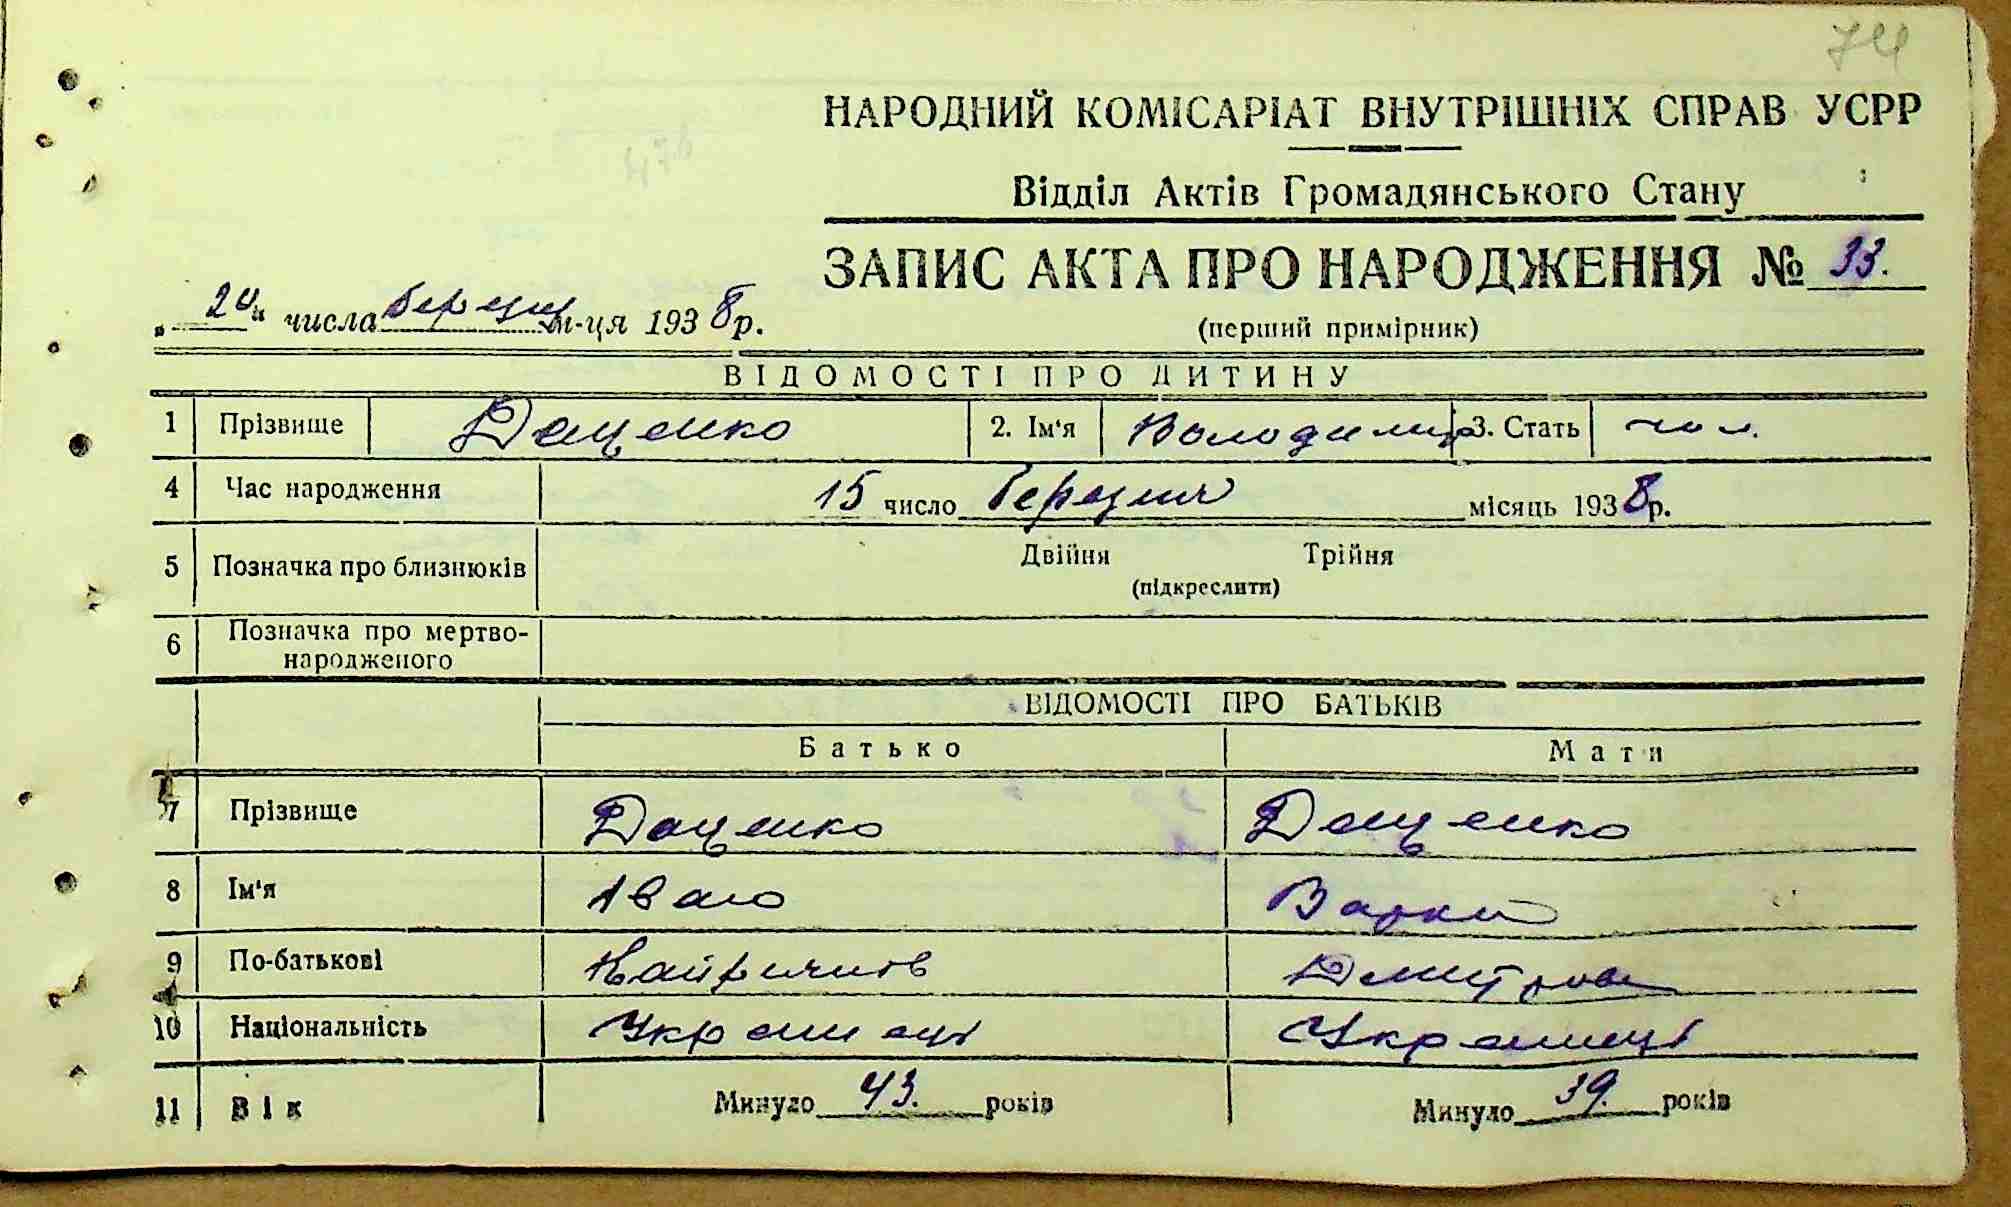 74
НАРОДНИЙ КОМІСАРІАТ ВНУТРІШНІХ СПРАВ УСРР
Відділ Актів Громадянського Стану
ЗАПИС АКТА ПРО НАРОДЖЕННЯ № 33.
„ 20 " числа березня м-ця 1938 р.
(перший примірник)
ВІДОМОСТІ ПРО ДИТИНУ
1 Прізвище Даценко 2. Ім'я Володимир 3. Стать чол.
4 Час народження 15 число березня місяць 1938 р.
5 Позначка про близнюків Двійня Трійня
(підкреслити)
6 Позначка про мертво-
народженого
ВІДОМОСТІ ПРО БАТЬКІВ
Батько Мати
7 Прізвище Даценко Даценко
8 Ім'я Іван
9 По-батькові Дмитрова
10 Національність Українець
11 Вік Минуло 43. років Минуло 39. років